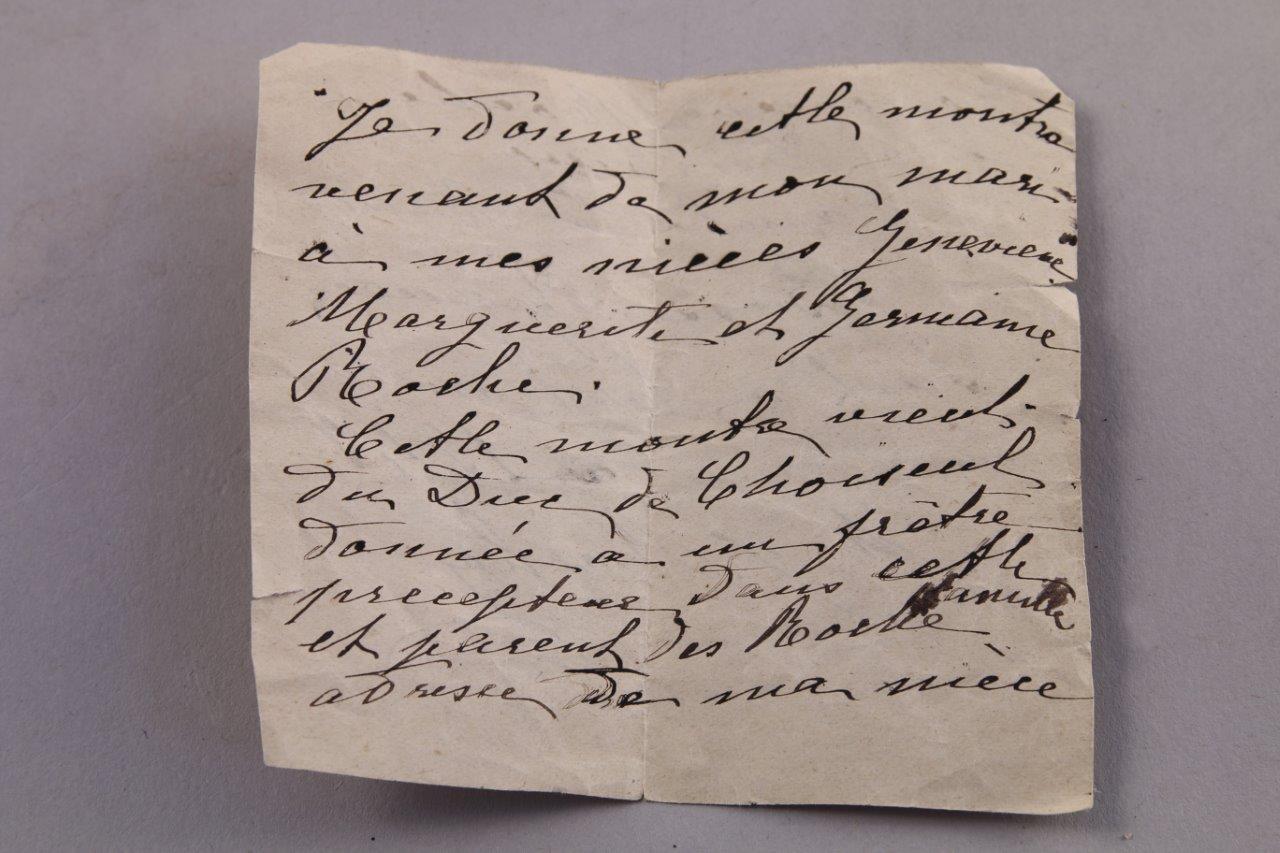 Je donne cette montre
venant de mon mari
à mes nièces Geneviève
Marguerite et Germaine
Roche.
Cette montre vient
du Duc de Choiseul
donnée a un prêtre
precepteur dans cette famille
et parent des Roche
adresse de ma nièce